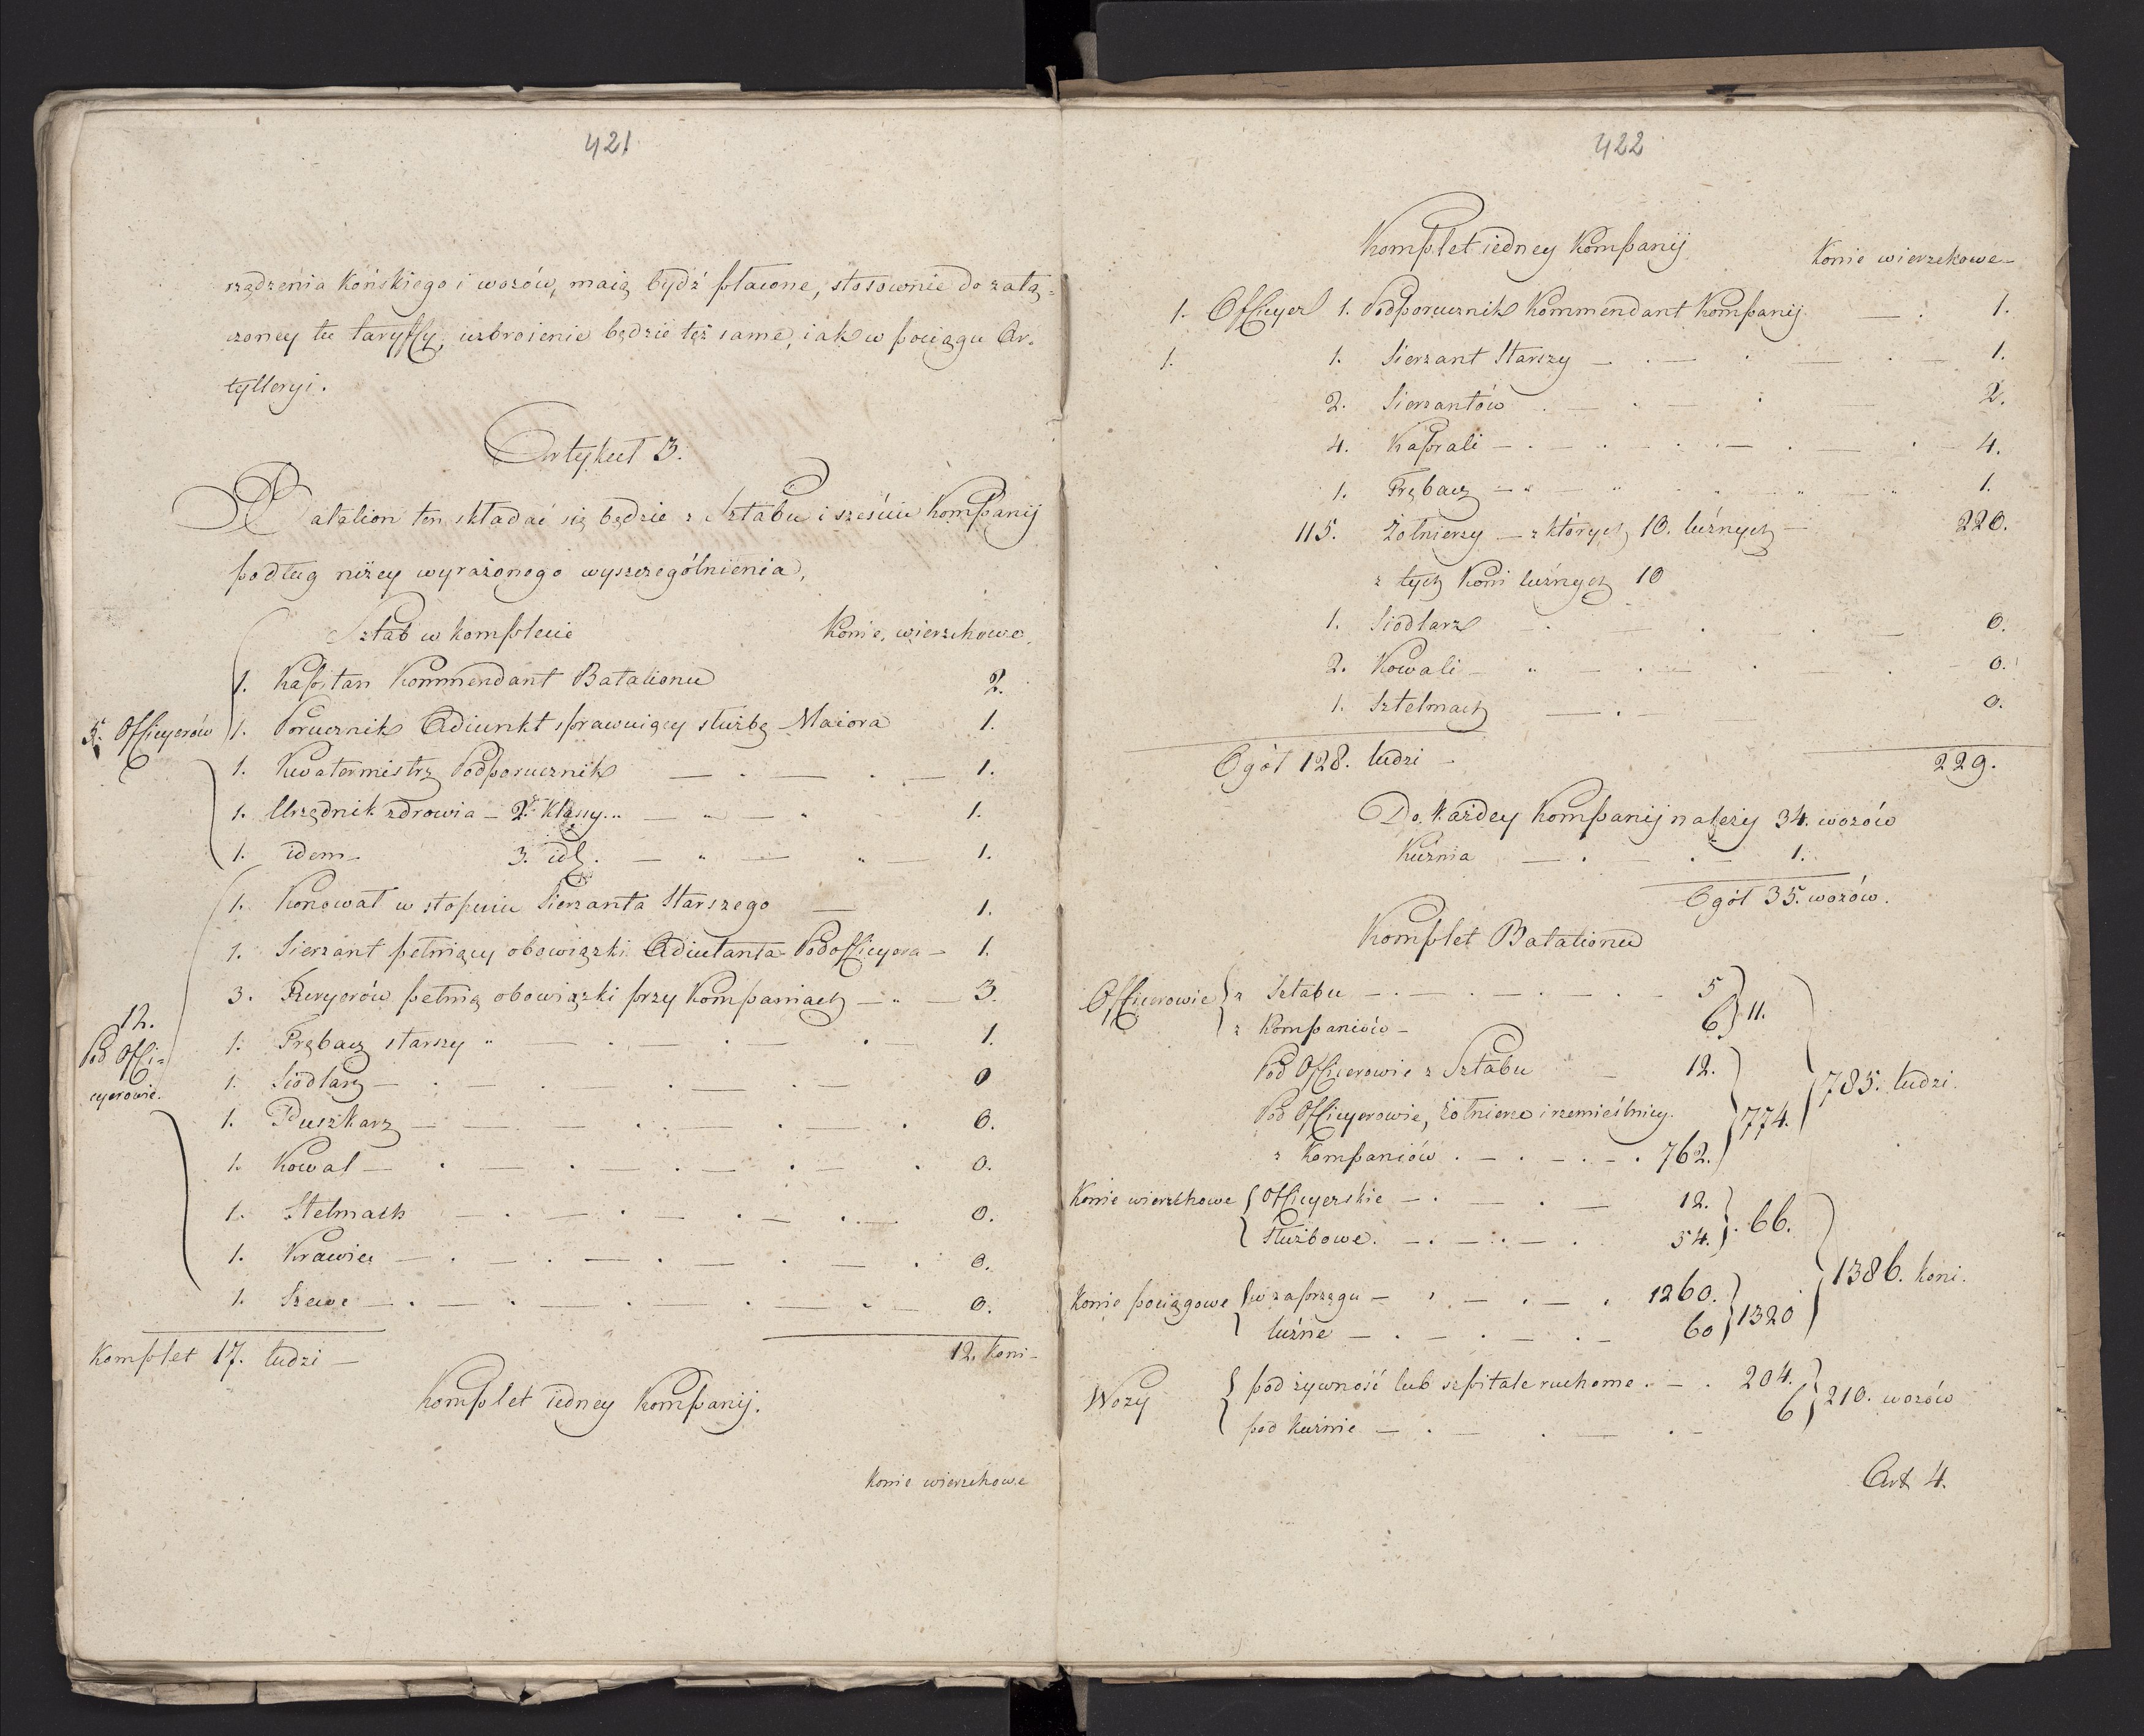 421
rządzenia Końskiego i wozów, maią bydź płacone, stosownie do załą=
czoney tu taryffy, uzbroienie będzie też same, iak w pociągu Ar=
tylleryi.
Artykuł 3.
Batalion ten składać się będzie z Sztabu i sześciu Kompanij
podług niżey wyrażonego wyszczególnienia,
Sztab w komplecie Konie wierzchowe
1. Kapitan Kommendant Batalionu 2.
5. Officyerów 1. Porucznik Adiunkt sprawuiący służbę Maiora 1.
1. Kwatermistrz Podporucznik 1.
1. Urzędnik zdrowia – 2. Klassy 1.
1. idem 3. id. 1.
1. Konował w stopniu Sierżanta Starszego 1.
1. Sierżant pełniący obowiązki Adiutanta Podofficyera 1.
3. Furyerów pełnią obowiązki przy Kompaniach 3.
12. Pod Offi=
cyerowie.
1. Trębacz starszy 1.
1. Siodlarz 0
1. Puszkarz 0.
1. Kowal 0.
1. Stelmach 0.
1. Krawiec 0.
1. Szewc 0.
Komplet 17. ludzi 12. Koni
Komplet iedney Kompanij.
Konie wierzchowe
422
Komplet iedney Kompanij Konie wierzchowe
1. Officyer 1. Podporucznik Kommendant Kompanij 1.
1. 1. Sierżant Starszy 1.
2. Sierżantów 2.
4. Kaprali 4.
1. Trębacz 1.
115. Żołnierzy – z których 10. luźnych 220.
z tych Koni luźnych 10
1. Siodlarz 0.
2. Kowali 0.
1. Sztelmach 0.
Ogół 128. ludzi 229.
Do każdey Kompanij należy 34. wozów
Kuźnia 1.
Ogół 35. wozów.
Komplet Batalionu
Officerowie z Sztabu 5
z Kompaniów 6 11.
Pod Officerowie z Sztabu 12.
Pod Officyerowie, Żołnierze i rzemieślnicy.
z Kompaniów 762. 774. 785. ludzi.
Konie wierzchowe Officyerskie 12.
Służbowe. 54. 66.
Konie pociągowe w zaprzęgu 1260.
luźne 60 1320 1386. koni.
Wozy pod żywność lub szpitale ruchome 204.
pod kuźnie 6 210. wozów
Art 4.